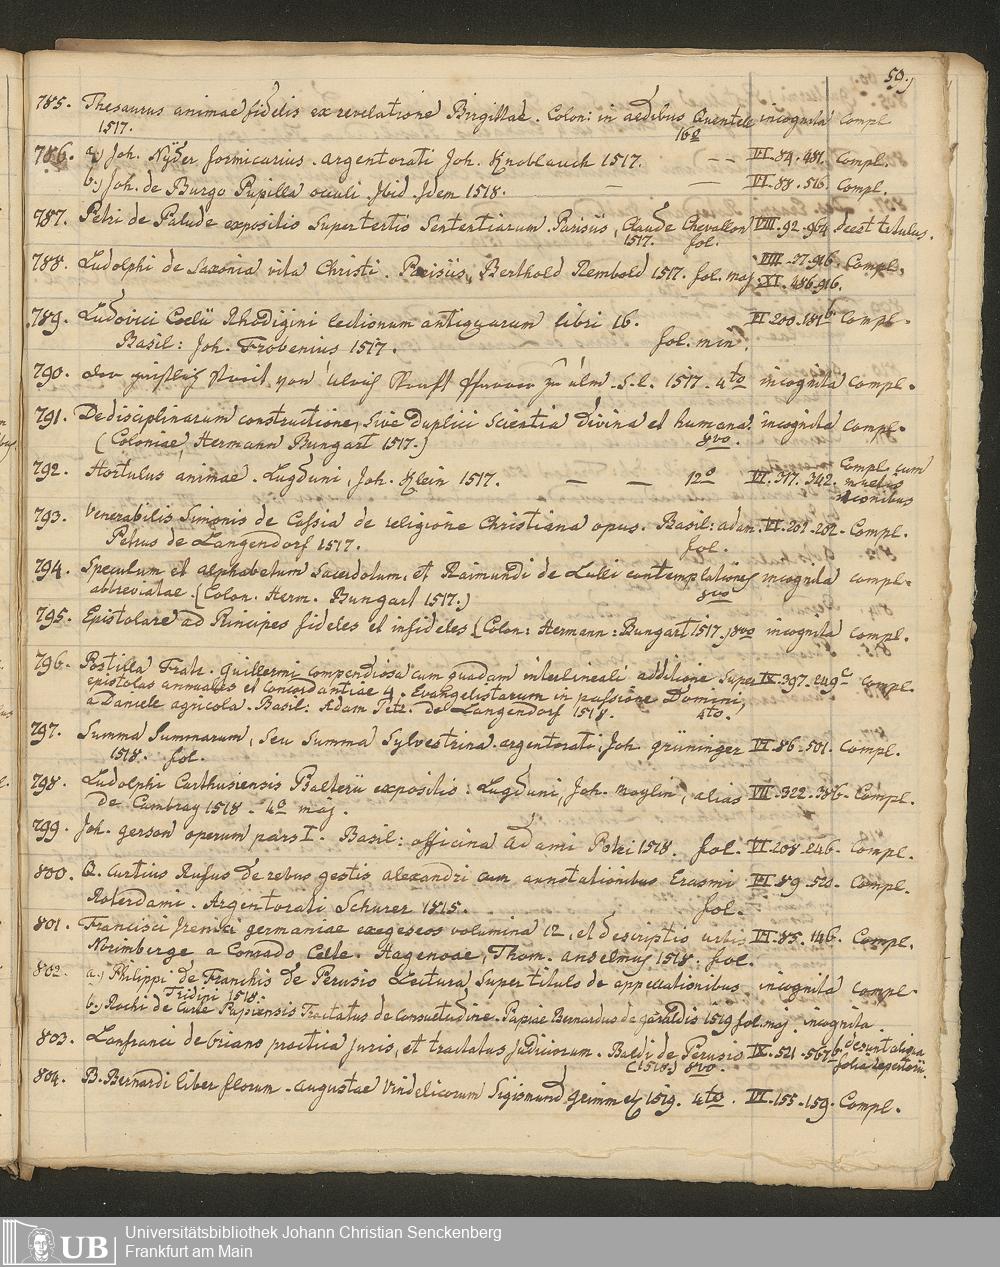 59.
785. Thesaurus animae fidelis ex revelatione Birgittae. Colon: in aedibus Quentels incognita Compl
1517. 16o
786. a.) Joh. Nyder formicarius. argentorati Joh. Knoblauch 1517. — — VI.84.481. Compl.
b.) Joh. de Burgo Pupilla oculi. Ibid. Idem 1518. — — VI.88.516. Compl.
787. Petri de Palude expositio super tertio Sententiarum. Parisiis, Claude Chevallon VIII.92.964 deest titulus.
1517. fol.
788. Ludolphi de Saxonia vita Christi. Parisiis, Berthold Rembold 1517. fol. maj. VIII.27.916. Compl.
XI.486.916.
789. Ludovici Coelii Rhodigini lectionum antiquarum libri 16. VI.200.181b Compl.
Basil: Joh. Frobenius 1517. fol. min.
790. zu ulm. S.l. 1517. 4to incognita Compl.
791. De disciplinarum constructione, sive duplici scientia divina et humana. incognita Compl.
(Coloniae, Hermann Bungart 1517.) 8vo.
792. Hortulus animae. Lugduni, Joh. Klein 1517. — — 12o VI.317.342. Compl. cum
multis
793. Venerabilis Simonis de Cassia de religione Christiana opus. Basil: adam VI.202-202. Compl.
Petrus de Langendorf 1517. fol.
794. Speculum et alphabetum Sacerdotum, et Raimundi de Lulli contemplationes incognita Compl.
abbreviatae. (Colon. Herm. Bungart 1517.) 8vo
795. Epistolare ad Principes fideles et infideles (Colon: Hermann: Bungart 1517.) 8vo incognita Compl.
796. Postilla Fratr. Guillermi compendiosa cum quadam interlineali additione super IX.397.249c Compl.
epistolas annuales et Concordantiae 4. Evangelistarum in passione Domini,
a Daniele agricola. Basil: Adam Petr. de Langendorf 1518. 4to.
797. Summa Summarum, seu Summa Sylvestrina. argentorati, Joh. grüninger VI.86-501. Compl.
1518. fol.
798. Ludolphi Carthusiensis Psalterii expositio: Lugduni, Joh. moylin, alias VII.322.386. Compl.
de Cambray 1518. 4o maj.
799. Joh. gerson operum pars I. Basil: officina adami Petri 1518. fol. VI.208-246. Compl.
800. Q. Curtius Rufus de rebus gestis alexandri cum annotationibus Erasmi VI.89.520. Compl.
Roterdami. Argentorati Schurer 1815. fol.
801. Francisci Irenici germaniae exegeseos volumina 12, et descriptio urbis VI.85.146. Compl.
Norimberge a Conrado Celte. Hagenoae, Thom. anselmus 1518. fol.
802. a.) Philippi de Franchis de Perusio Lectura super titulo de appellationibus incognita Compl.
Tridini 1518.
b.) Rochi de Curte Papiensis Tractatus de Consuetudine. Papiae Bernardus de garaldis 1519 fol. maj. incognita.
803. Lanfranci de oriano practica juris, et tractatus judiciorum. Baldi de Perusio IX.521-567b desunt aliqua
(1518.) 8vo. folia repertorii.
804. B. Bernardi liber florum. augustae Vindelicorum Sigismund grimm etc 1519. 4to. VI.155-159. Compl.
UB
Universitätsbibliothek Johann Christian Senckenberg
Frankfurt am Main